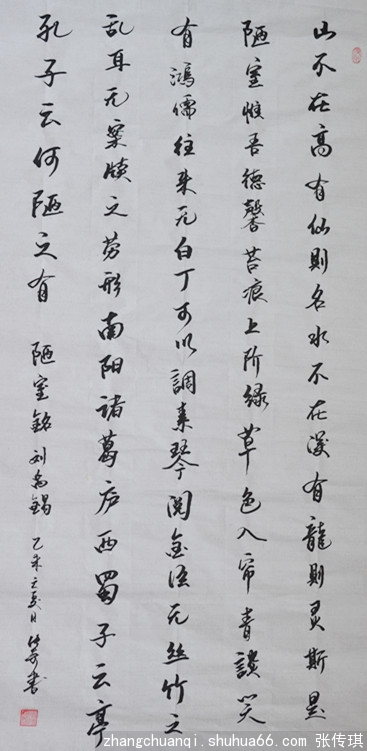 山不在高有仙則名水不在深有龍則灵斯是
陋室惟吾德馨苔痕上阶绿草色入帘青談笑
有鴻儒往来无白丁可以調素琴阅金经无丝竹之
乱耳无案牍之劳形南阳諸葛庐西蜀子云亭
孔子云何陋之有 陋室銘 刘禹锡 乙未之夏日 书
zhangchuanqi.shuhua66.com 张传琪